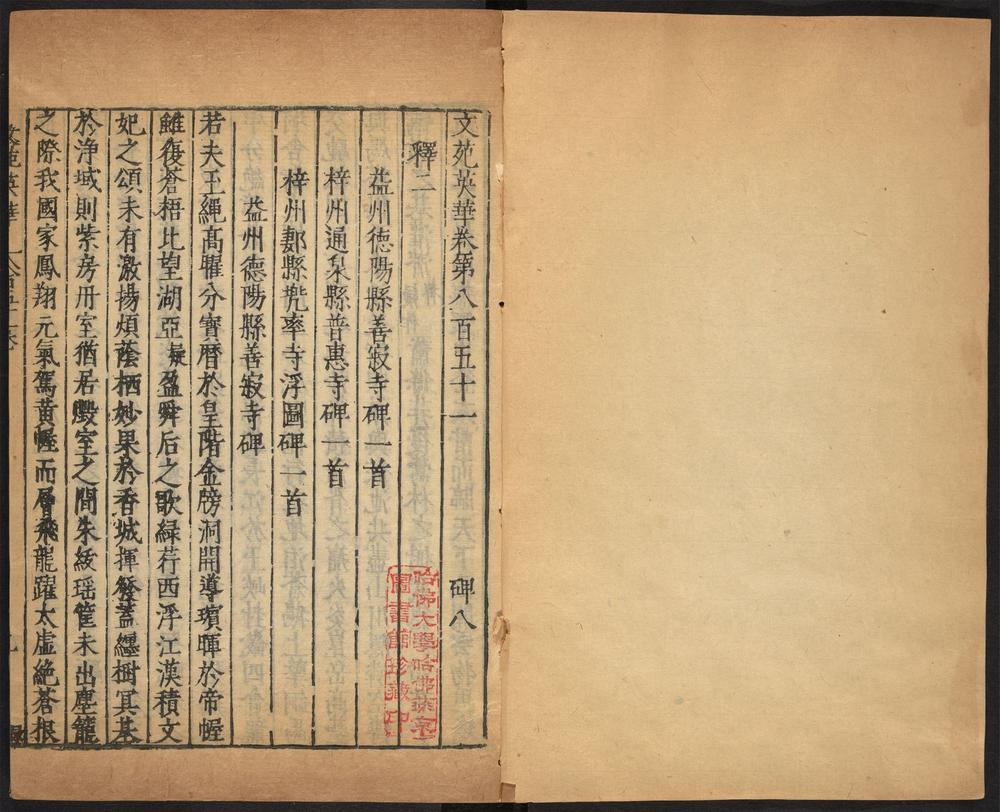 文苑英華卷第八百五十一 碑八
釋二
益州德陽縣善寂寺碑一首
梓州通泉縣普惠寺碑一首
梓州郪縣兠率寺浮圖碑一首
益州德陽縣善寂寺碑
若夫玉繩髙躍分寳曆於皇階金牓洞開導瓊暉於帝幄
雖復蒼梧北望湖亞疑盈舜后之歌緑荇西浮江漢積文
妃之頌未有激揚煩蔭栖妙果於香城揮發蓋纒樹冥基
於浄域則紫房冊室猶居燬室之間朱紱瑶筐未出塵籠
之際我國家鳳翔元氣駕黄幄而層飛龍躍太虚絶蒼根
哈佛大學哈佛燕京
圖書館珍藏印